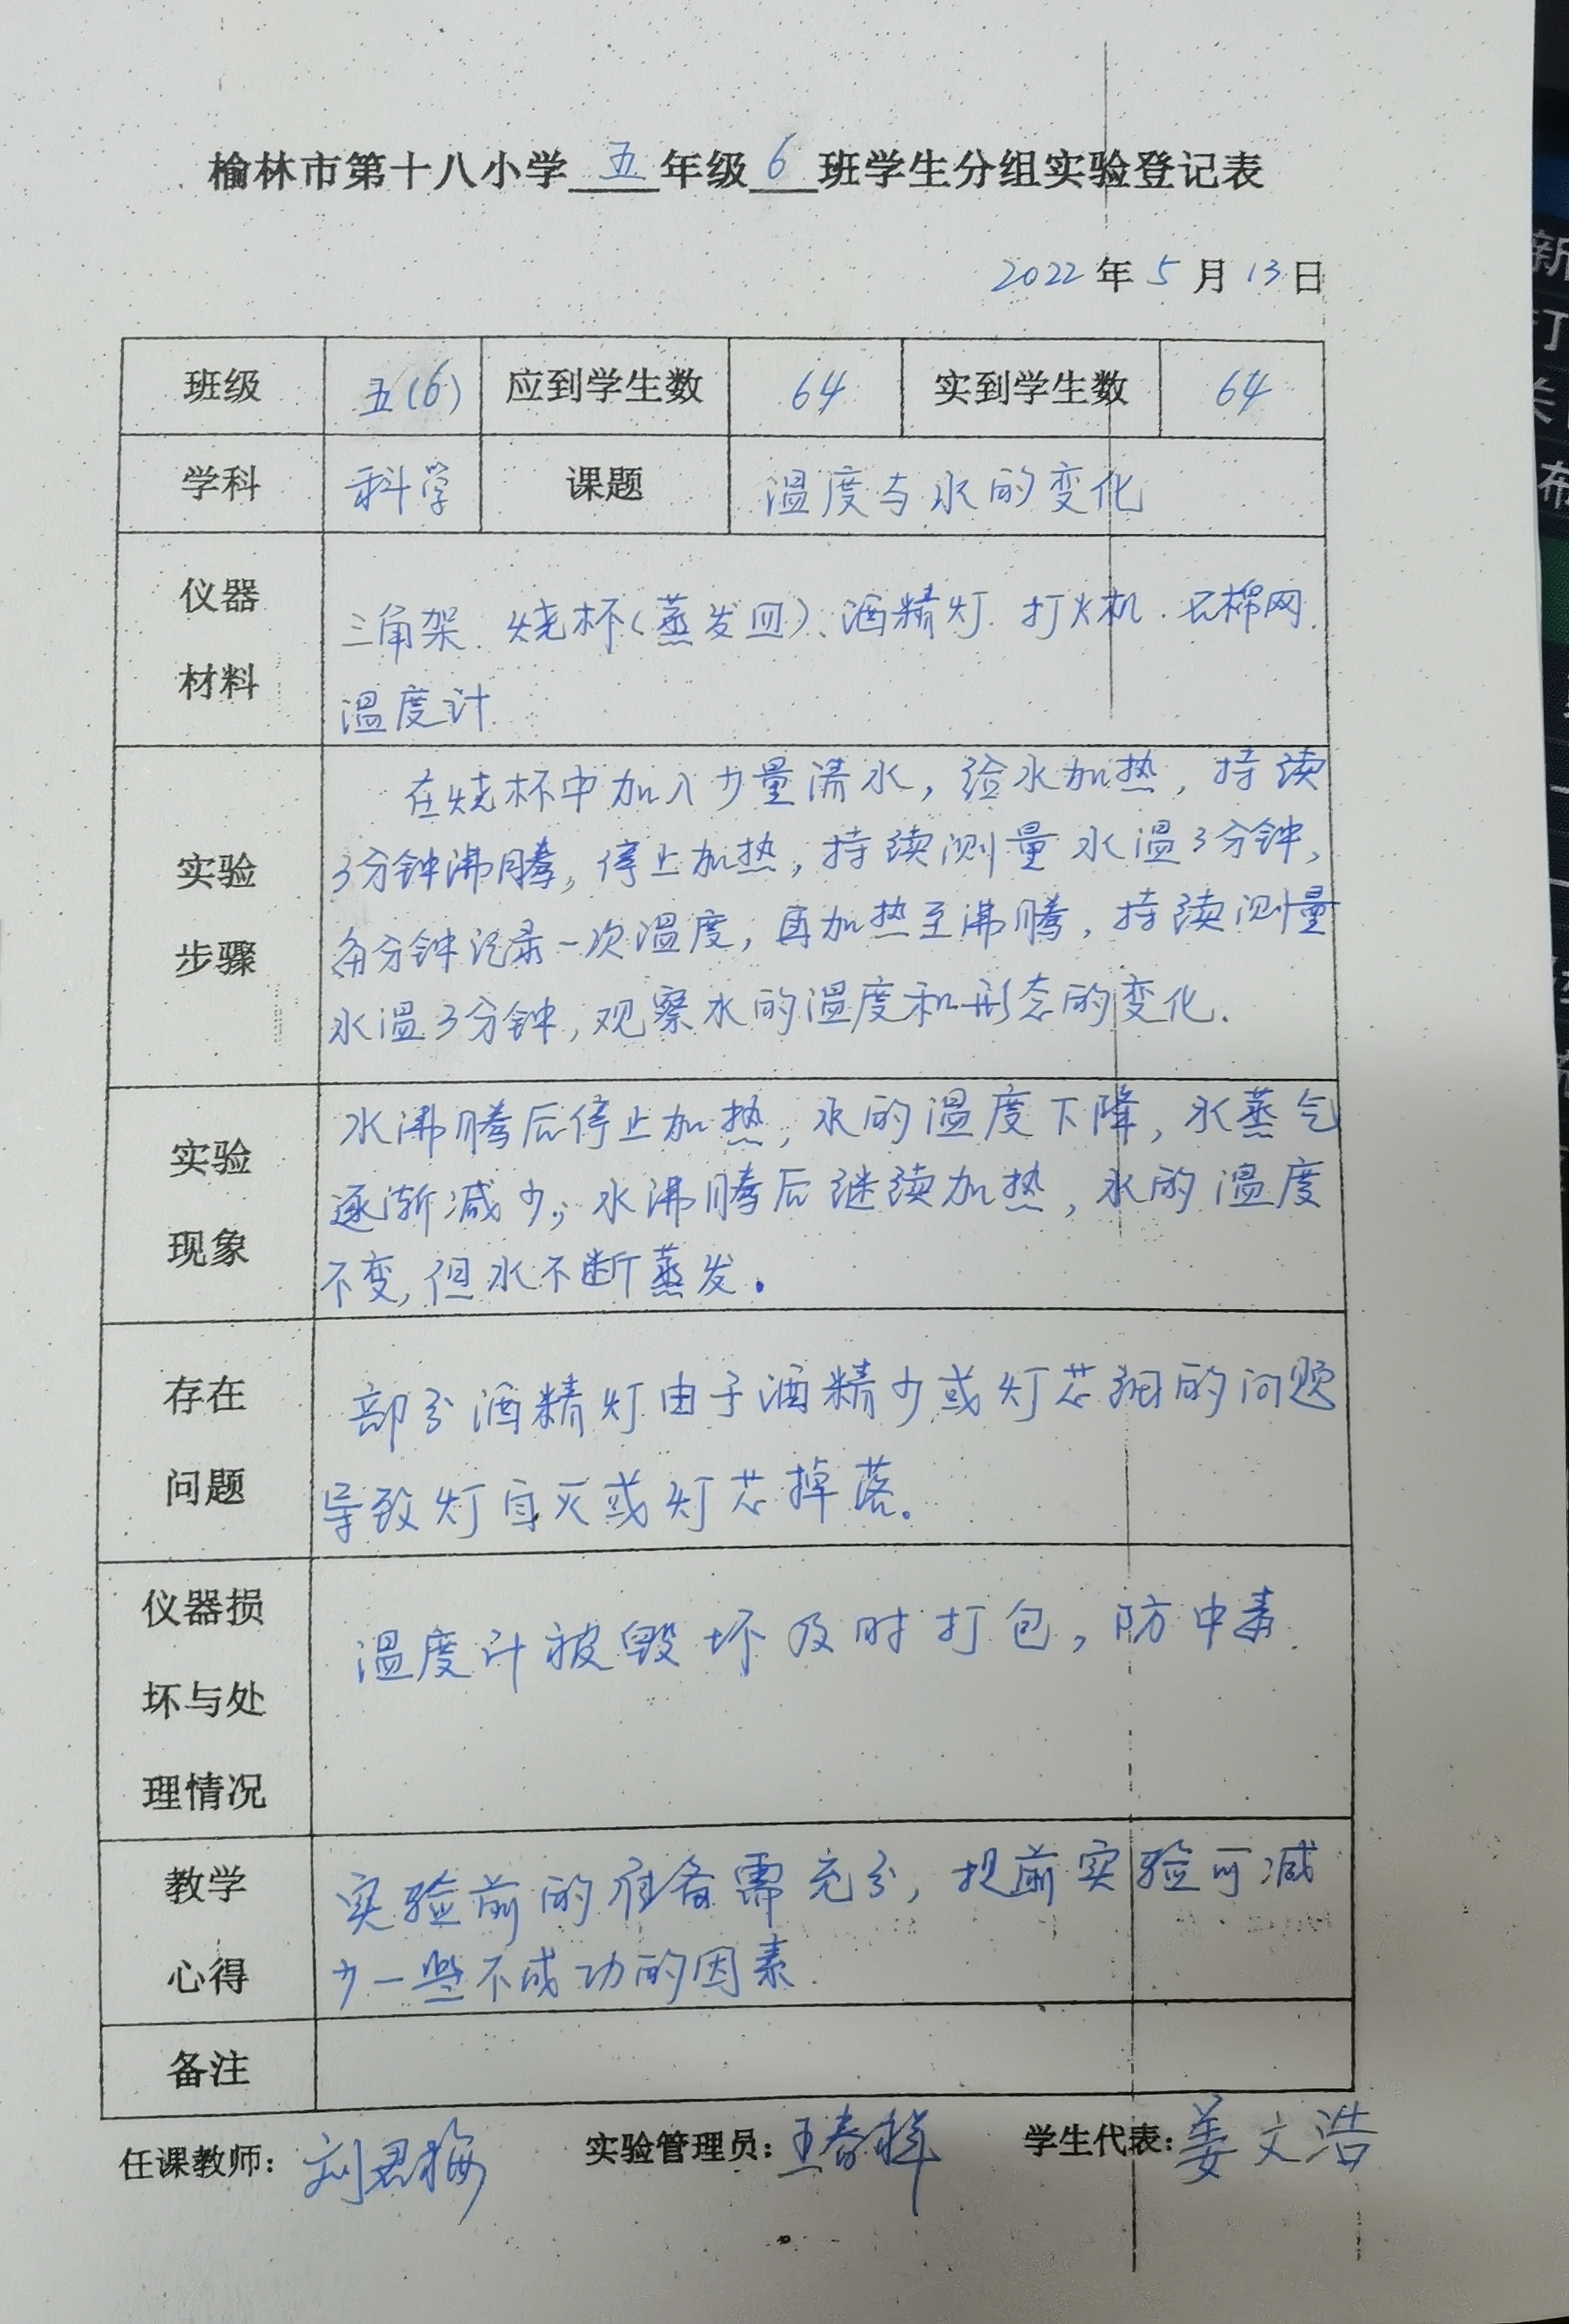 榆林市第十八小学 五 年级 6 班学生分组实验登记表
2022 年 5 月 13 日
班级 五(6) 应到学生数 64 实到学生数 64
学科 科学 课题 温度与水的变化
仪器
材料
三角架、烧杯(蒸发皿)、酒精灯、打火机、石棉网、
温度计.
实验
步骤
在烧杯中加入少量清水，给水加热，持续
3分钟沸腾，停止加热，持续测量水温3分钟，
每分钟记录一次温度，再加热至沸腾，持续测量
水温3分钟，观察水的温度和形态的变化.
实验
现象
水沸腾后停止加热，水的温度下降，水蒸气
逐渐减少；水沸腾后继续加热，水的温度
不变，但水不断蒸发.
存在
问题
部分酒精灯由于酒精少或灯芯细的问题
导致灯自灭或灯芯掉落。
仪器损
坏与处
理情况
温度计被毁坏及时打包，防中毒.
教学
心得
实验前的准备需充分，提前实验可减
少一些不成功的因素.
备注
任课教师：刘君梅 实验管理员：王春祥 学生代表：姜文浩
新
打
关
布